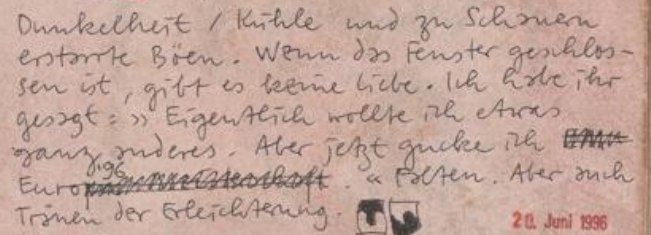 Dunkelheit / Kühle und zu Schauern
erstarrte Böen. Wenn das Fenster geschlos-
sen ist, gibt es keine Liebe. Ich habe ihr
gesagt: » Eigentlich wollte ich etwas
ganz anderes. Aber jetzt gucke ich
Euro 96 . « Falten. Aber auch
Tränen der Erleichterung.
20. Juni 1996